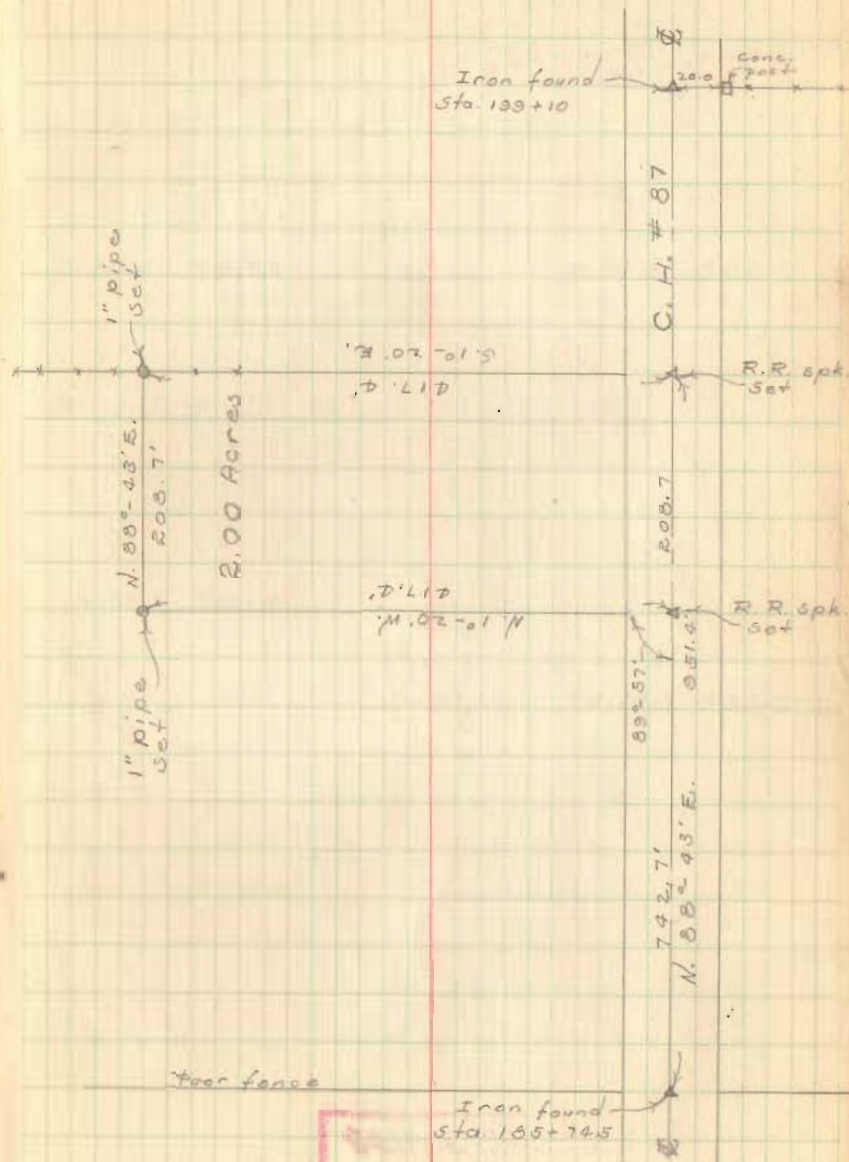 ℄
Iron found
Sta. 199+10
20.0
Conc.
post
C. H. # 87
1" pipe
set
S. 1°-20' E.
417.4'
R.R. spk.
set
N. 88°-43' E.
208.7'
2.00 Acres
208.7
417.4'
N. 1°-20' W.
R. R. spk.
set
89°-57'
951.4'
1" pipe
set
742.7'
N. 88°-43' E.
Poor fence
Iron found
Sta. 185+745
℄